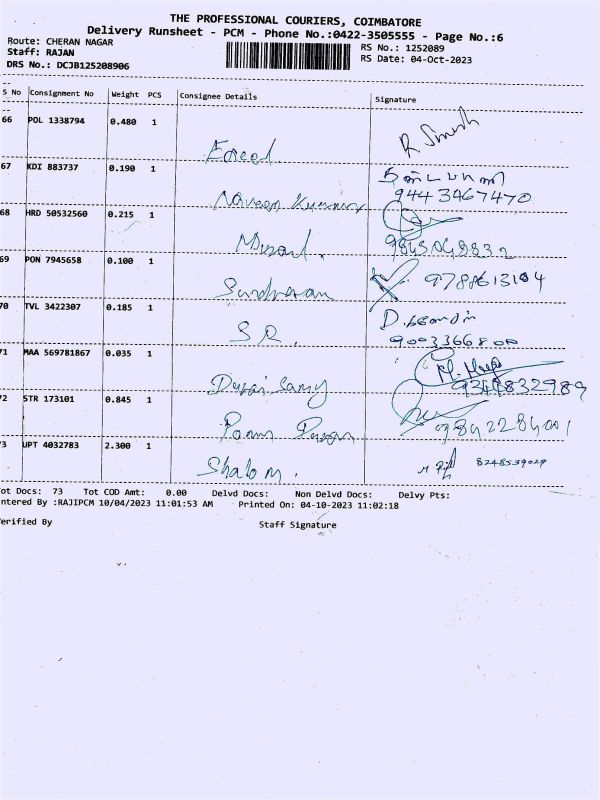 THE PROFESSIONAL COURIERS, COIMBATORE
Delivery Runsheet - PCM - Phone No.:0422-3505555 - Page No.:6
Route: CHERAN NAGAR
RS No.: 1252089
Staff: RAJAN
RS Date: 04-Oct-2023
DRS No.: DCJB125208906
S No Consignment No Weight PCS Consignee Details Signature
66 POL 1338794 0.480 1 R. Smesh
Fareed
67 KDI 883737 0.190 1
Naveen Kumar 9443467470
68 HRD 50532560 0.215 1
Murali.
69 PON 7945658 0.100 1 9788613104
Sundharam
70 TVL 3422307 0.185 1
S R. 9003366800
71 MAA 569781867 0.035 1
Durai Samy
72 STR 173101 0.845 1
Ponnu Durai 9842284001
73 UPT 4032783 2.300 1 8248539029
Shalom.
Tot Docs: 73 Tot COD Amt: 0.00 Delvd Docs: Non Delvd Docs: Delvy Pts:
Entered By :RAJIPCM 10/04/2023 11:01:53 AM Printed On: 04-10-2023 11:02:18
Verified By Staff Signature